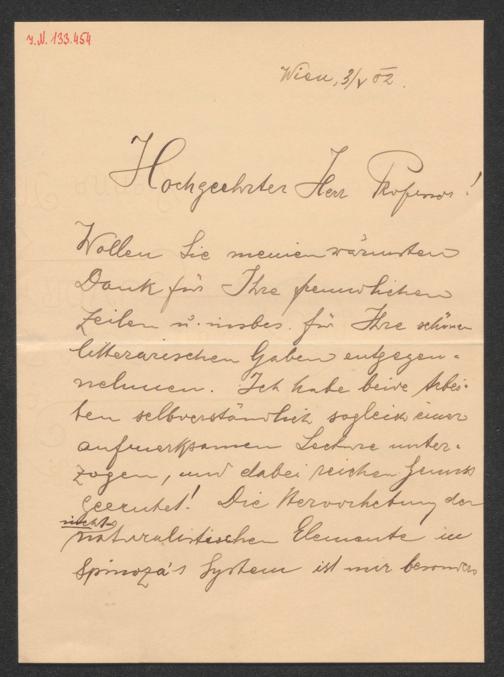 J.N. 133.454
Wien, 3/V 02.
Hochgeehrter Herr Professor!
Wollen Sie meinen wärmsten
Dank für Ihre freundlichen
Zeilen u. insbes. für Ihre schönen
litterarischen Gaben entgegen-
nehmen. Ich habe beide Arbei-
ten selbverständlich sogleich einer
aufmerksamen Lecture unter-
zogen, und dabei reichen Genuss
geerntet! Die Hervorhebung der
nicht
naturalistischen Elemente in
Spinoza's System ist mir besonders